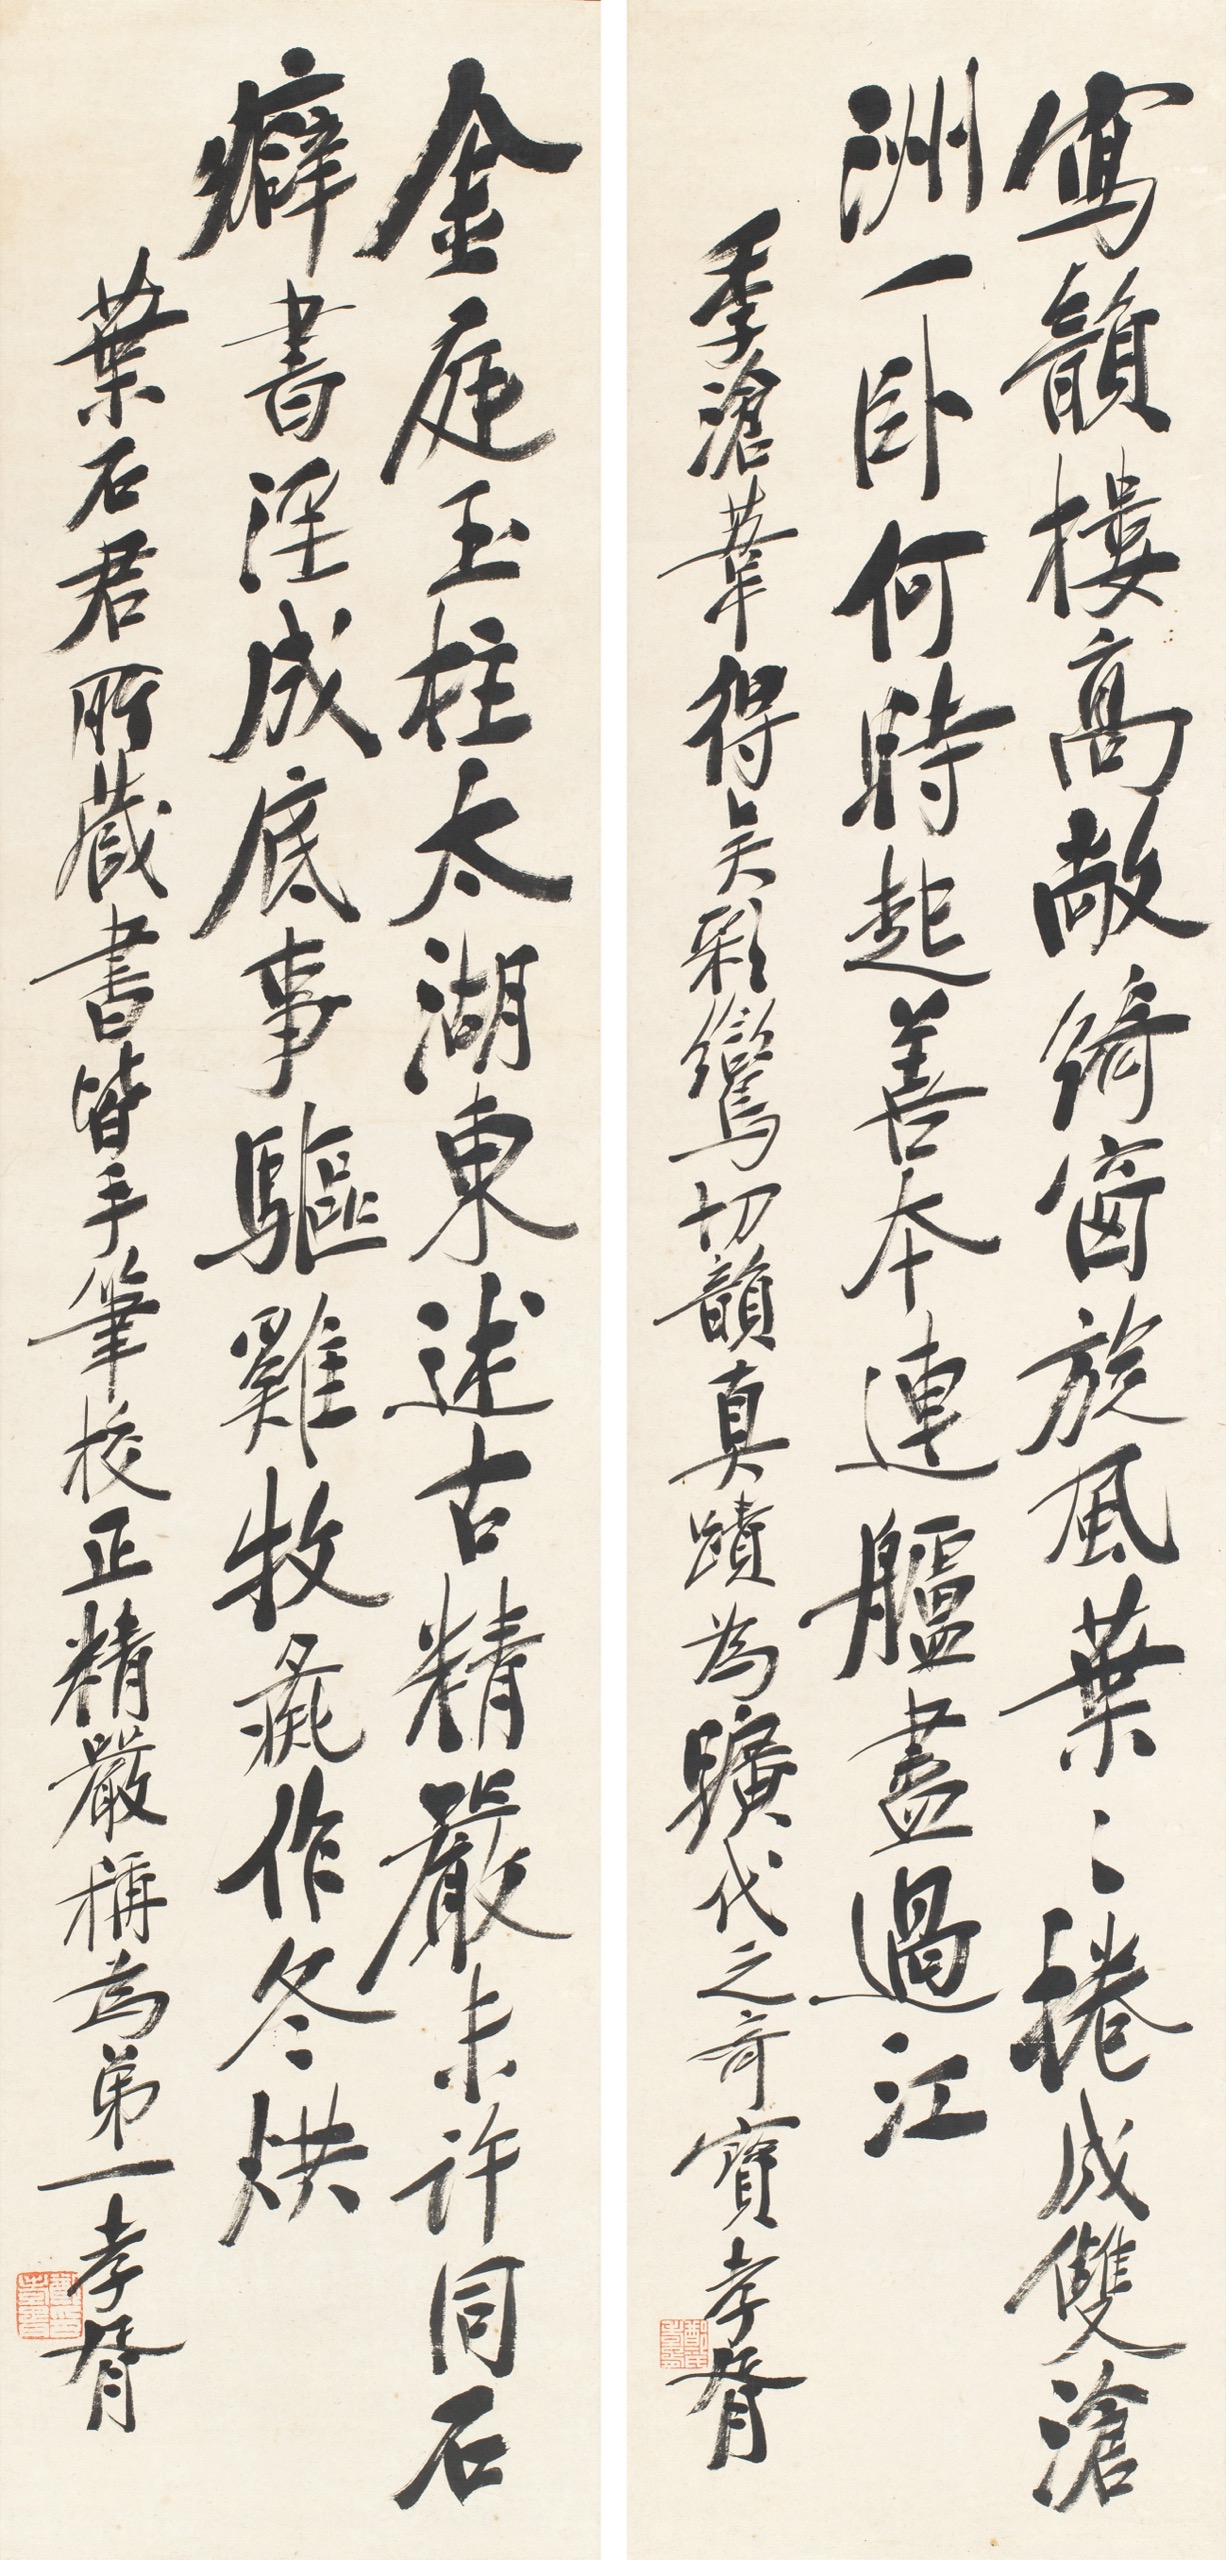 寫韻樓高敞綺窗旋風葉〻捲成雙滄
洲一卧何時起善本連艫盡過江
季滄葦得吴彩鸞切韻真蹟為曠代之奇寶孝胥
金庭玉柱太湖東述古精嚴未許同石
癖書淫成底事驅雞牧彘作冬烘
葉石君所藏書皆手筆校正精嚴稱為弟一孝胥